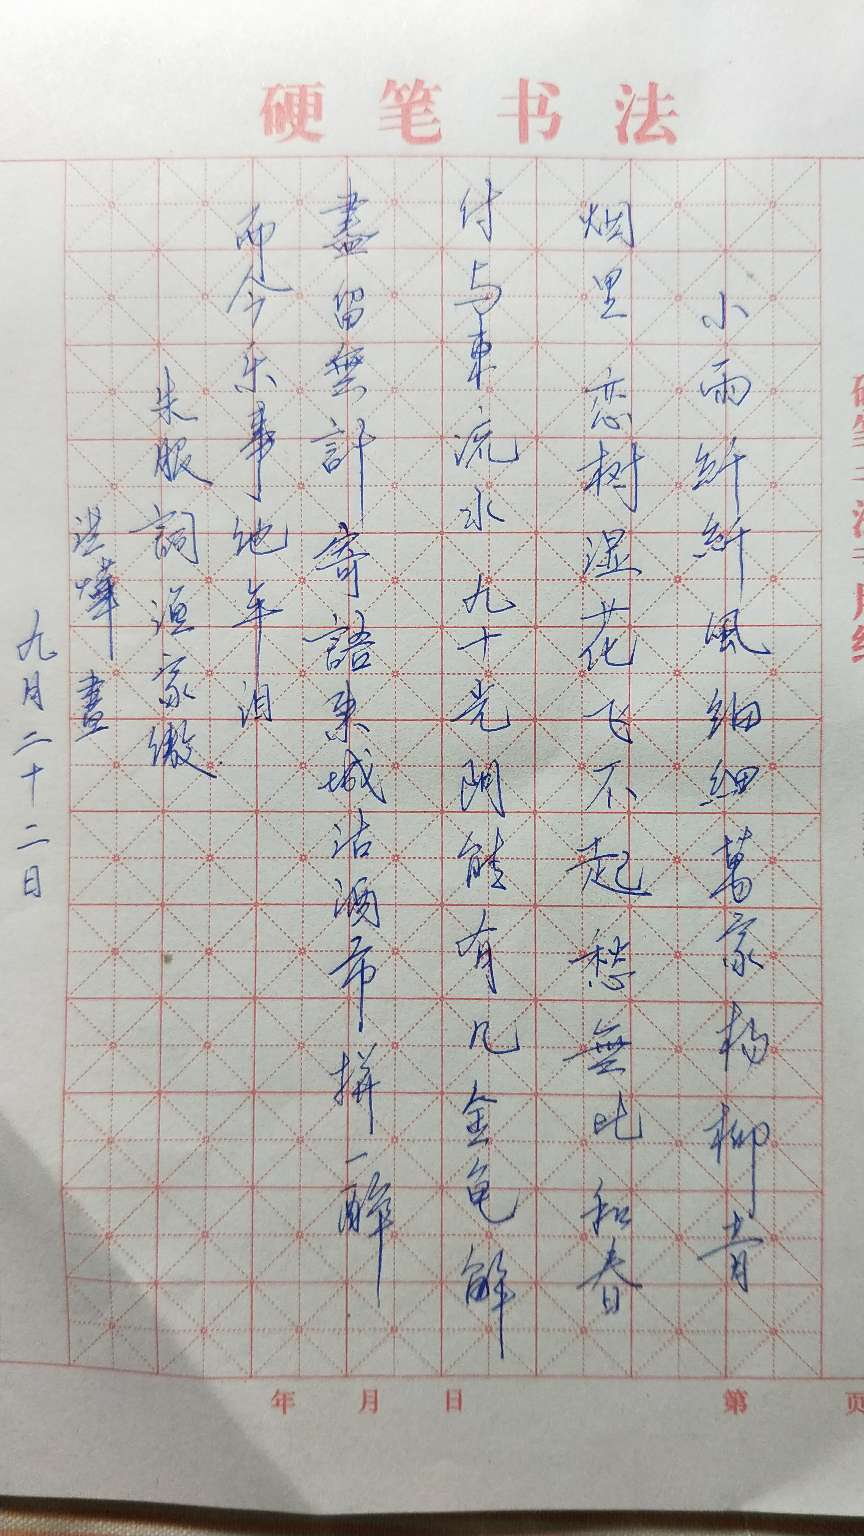 硬笔书法
小雨纤纤風细细萬家杨柳青
烟里恋树湿花飞不起愁無比和春
付与東流水九十光阴能有几金龟解
盡留無計寄語东城沽酒市拼一醉
而今乐事他年泪
朱服詞渔家傲
書
九月二十二日
年 月 日 第 页